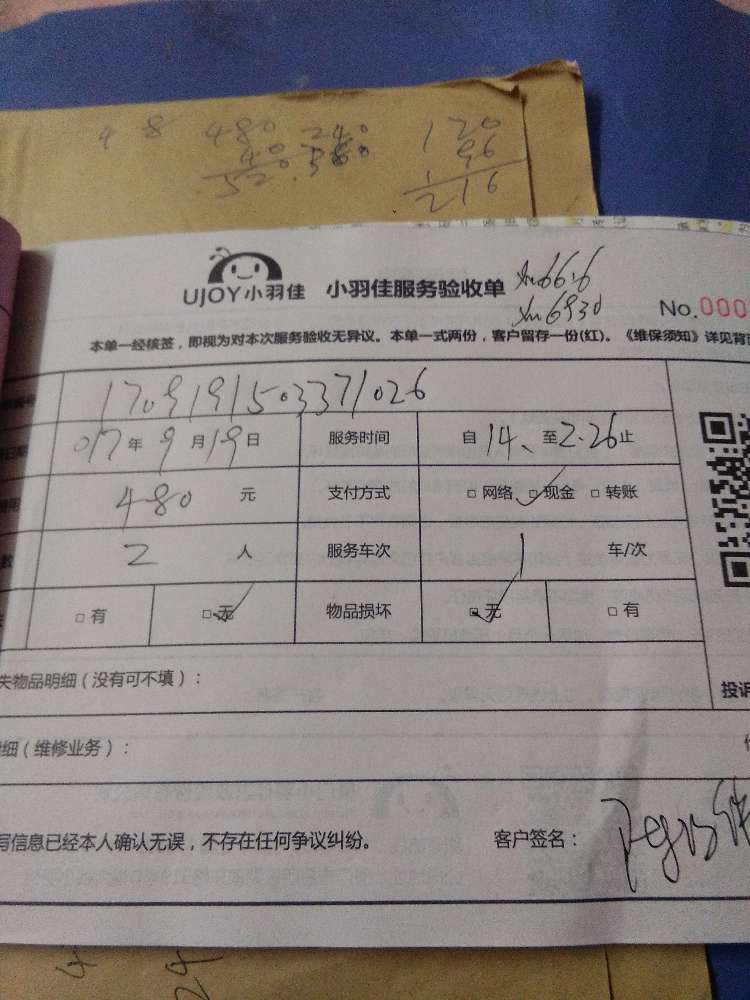 4 8 480 240 120
40 380 96
520. 216
UJOY小羽佳 小羽佳服务验收单
6930
No.000
本单一经核签，即视为对本次服务验收无异议。本单一式两份，客户留存一份(红)。《维保须知》详见背面
1709191503371026
017年9月19日 服务时间 自14、至2.26止
480元 支付方式 □网络 □现金 □转账
数 2人 服务车次 1 车/次
□有 □无 物品损坏 □无 □有
失物品明细（没有可不填）：
投诉
细（维修业务）：
写信息已经本人确认无误，不存在任何争议纠纷。 客户签名：